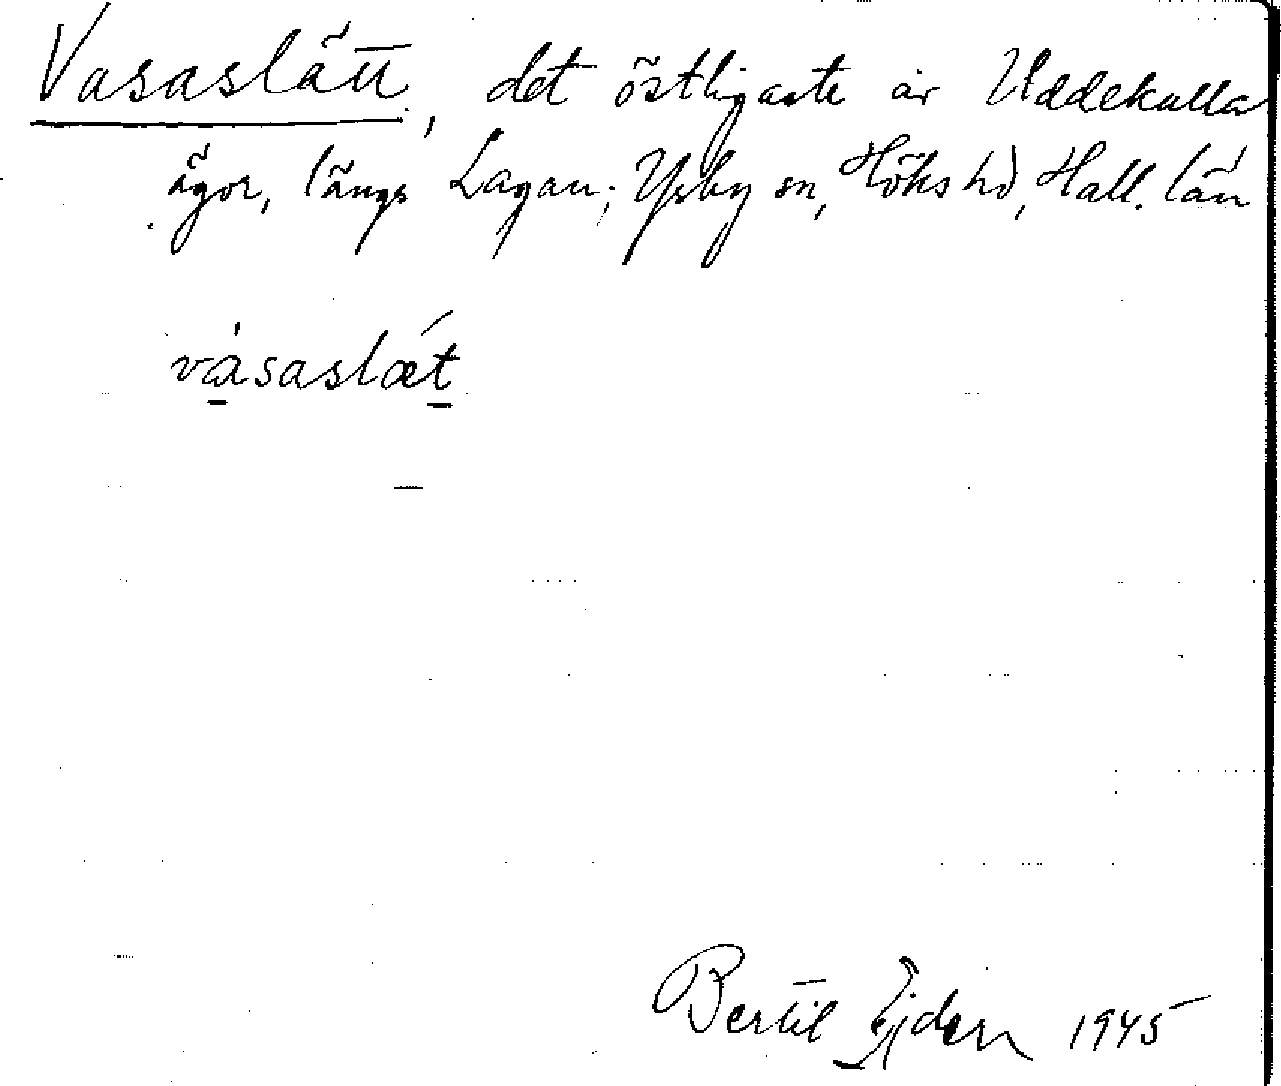 Vasaslätt, det östligaste av Uddekulla
ägor, längs Lagan; Ysby sn, Höks hd, Hall. län
vásaslæ´t
Bertil Ejder 1945